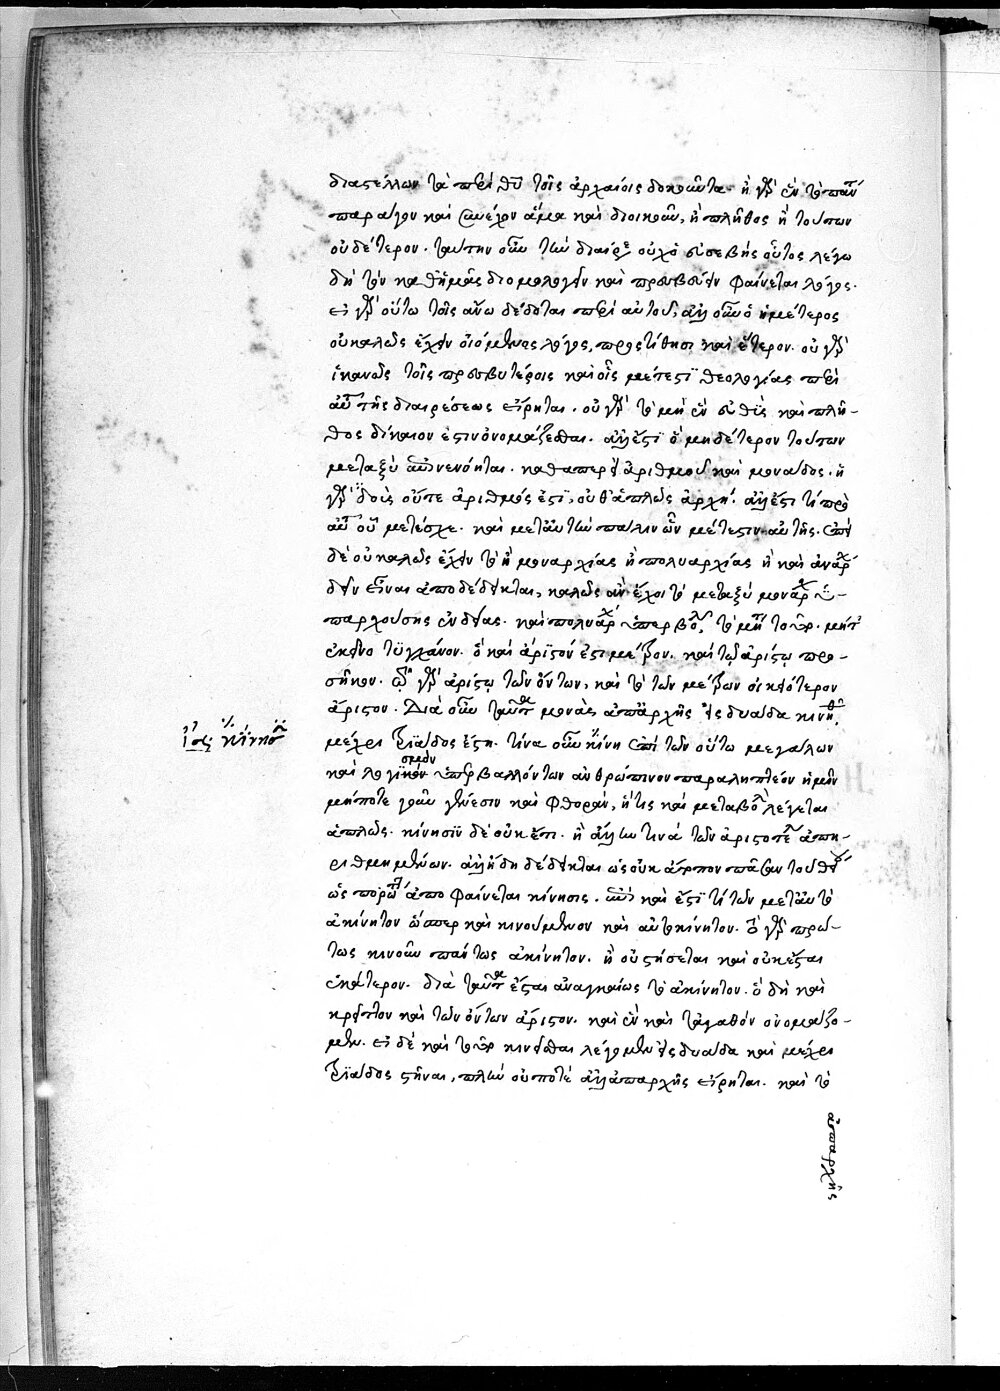 διαστέλλων τὰ περὶ θῦ τοῖς ἀρχαίοις δοκοῦντα. ἢ γὰρ ἓν τὸ πᾶν
παράγον καὶ συνέχον ἅμα καὶ διοικοῦν, ἢ πλῆθος ἢ τούτων
οὐδέτερον. ταύτην οὖν τὴν διαίρε οὐχ ὁ εὐσεβὴς οὗτος λέγω
δὴ τὸν καθ' ἡμᾶς διομολογεῖν καὶ πρεσβεύειν φαίνεται λόγος.
εἰ γὰρ οὕτω τοῖς ἄνω δέδοται περὶ αὐτοῦ, ἀλλ' οὖν ὁ ἡμέτερος
οὐ καλῶς ἔχειν οἰόμενος λόγος, προστίθησι καὶ ἕτερον. οὐ γὰρ
ἱκανῶς τοῖς πρεσβυτέροις καὶ οἷς μέτεστι θεολογίας περὶ
αὐτῆς διαιρέσεως εἴρηται. οὐ γὰρ τὸ μὴ ἓν εὐθὺς καὶ πλῆ-
θος δίκαιον ἐστὶν ὀνομάζεσθαι. ἀλλ' ἔστι ὃ μηδέτερον τούτων
μεταξὺ νενόηται. καθάπερ ἀριθμοῦ καὶ μονάδος. ἡ
γὰρ δυὰς οὔτε ἀριθμός ἐστι, οὔθ' ἁπλῶς ἀρχή. ἀλλ' ἔστι τι πρὸ
αὐτοῦ οὗ μετέσχε. καὶ μετ' αὐτὴν πάλιν ὧν μέτεστιν αὐτῆς. ἐπεὶ
δὲ οὐ καλῶς ἔχειν τὸ ἢ μοναρχίας ἢ πολυαρχίας ἢ καὶ ἀναρχ
δεῖν εἶναι ἀποδέδεικται, καλῶς ἂν ἔχοι τὸ μεταξὺ μοναρχ ὑ-
παρχούσης ἐνδείας. καὶ πολυαρχ ὑπερβολ, τὸ μήτε τοῦτο. μήτ'
ἐκεῖνο τυγχάνον. ὃ καὶ ἄριστόν ἐστι μεῖζον. καὶ τῷ ἀρίστῳ προ-
σῆκον. τῷ γὰρ ἀρίστῳ τῶν ὄντων, καὶ τὸ τῶν μείζων οἰκειότερον
ἄριστον. Διὰ οὖν ταῦτα μονὰς ἀπ' ἀρχῆς εἰς δυάδα κινηθ,
ἴσως ἡ κίνησις
μέχρι τριάδος ἔστη. τίνα οὖν κίνη ἐπὶ τῶν οὕτω μεγάλων
σμὸν
καὶ λογικὸν ὑπερβαλλόντων ἀνθρώπινον παραληπτέον ἡμῖν
μήποτε γοῦν γένεσιν καὶ φθορὰν, ἥτις καὶ μεταβολὴ λέγεται
ἁπλῶς. κίνησιν δὲ οὐκ ἔστι. ἢ ἄλλην τινὰ τῶν ἀριστοτέλ ἀπη-
ριθμημένων. ἀλλ' ἤδη δέδεικται ὡς οὐκ ἄτρεπον πᾶσαν τοῦ θῦ
ὡς πορρωτ' ἀποφαίνεται κίνησις. καὶ ἔστι τι τῶν μετ' αὐτὸ
ἀκίνητον ὥσπερ καὶ κινούμενον καὶ αὐτοκίνητον. τὸ γὰρ πρώ-
τως κινοῦν πάντως ἀκίνητον. ἢ οὐ στήσεται καὶ οὐκ ἔσται
ἑκάτερον. διὰ ταῦτα ἔσται ἀναγκαίως τὸ ἀκίνητον. ὃ δὴ καὶ
κρεῖττον καὶ τῶν ὄντων ἄριστον. καὶ ἓν καὶ τἀγαθὸν ὀνομάζο-
μεν. εἰ δὲ καὶ τὸ ἓν κινεῖσθαι λέγομεν εἰς δυάδα καὶ μέχρι
τριάδος στῆναι, πλὴν οὔποτε ἀλλ' ἀπαρχῆς εἴρηται. καὶ τὸ
ἀπαρχῆς